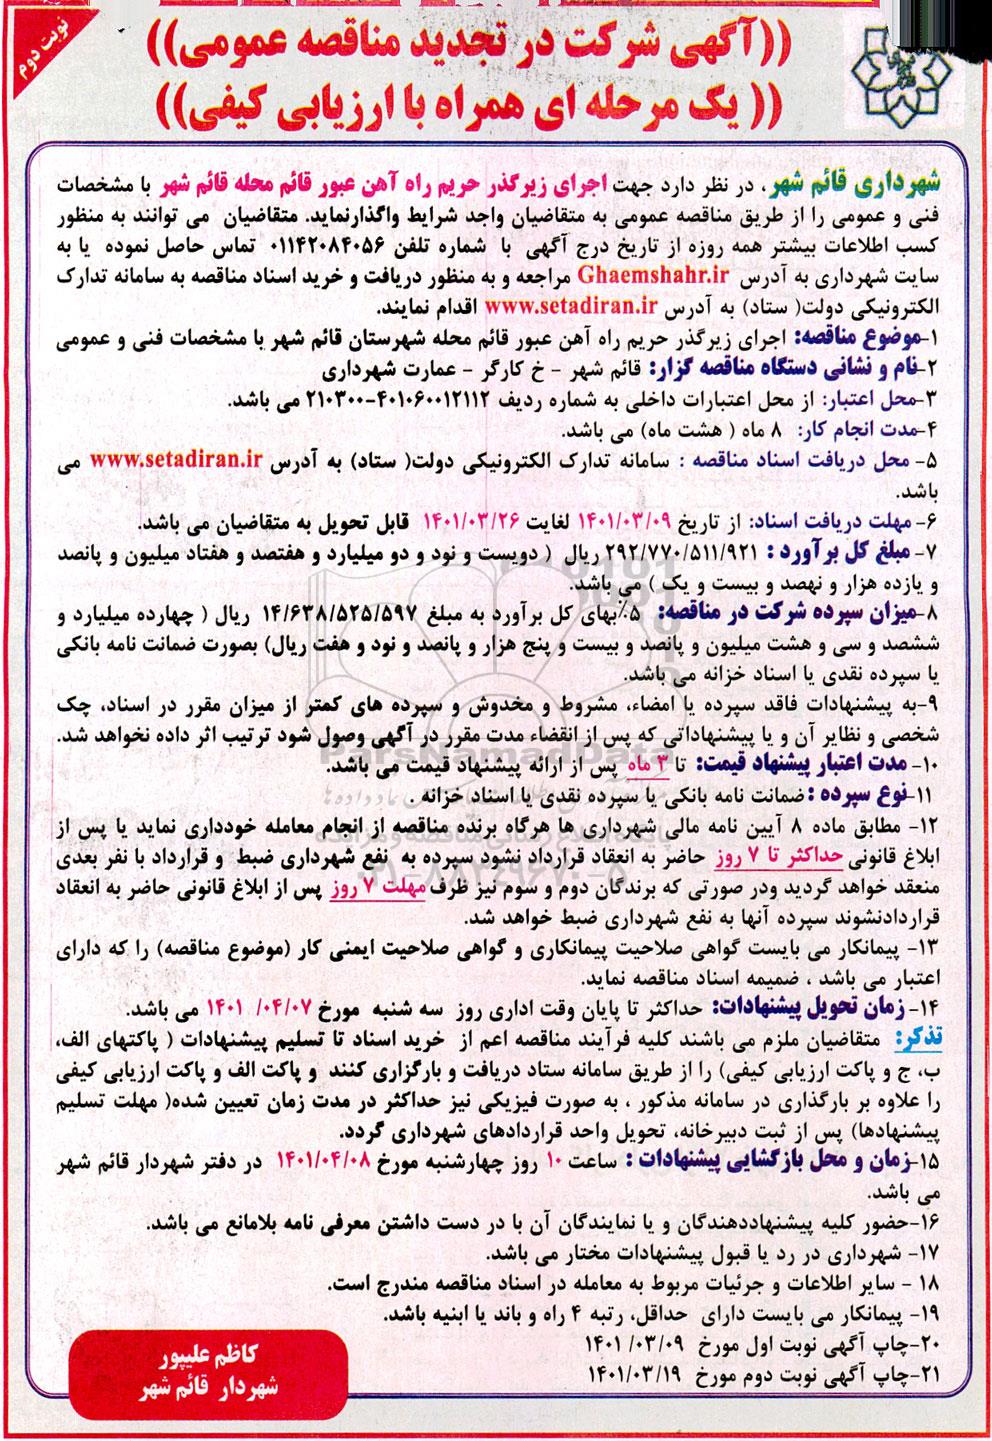 نوبت دوم
((آگهی شرکت در تجدید مناقصه عمومی))
(( یک مرحله ای همراه با ارزیابی کیفی))
شهرداری قائم شهر، در نظر دارد جهت اجرای زیرگذر حریم راه آهن عبور قائم محله قائم شهر با مشخصات
فنی و عمومی را از طریق مناقصه عمومی به متقاضیان واجد شرایط واگذارنماید. متقاضیان می توانند به منظور
کسب اطلاعات بیشتر همه روزه از تاریخ درج آگهی با شماره تلفن ۰۱۱۴۲۰۸۴۰۵۶ تماس حاصل نموده یا به
سایت شهرداری به آدرس Ghaemshahr.ir مراجعه و به منظور دریافت و خرید اسناد مناقصه به سامانه تدارک
الکترونیکی دولت( ستاد) به آدرس www.setadiran.ir اقدام نمایند.
۱-موضوع مناقصه: اجرای زیرگذر حریم راه آهن عبور قائم محله شهرستان قائم شهر با مشخصات فنی و عمومی
۲-نام و نشانی دستگاه مناقصه گزار: قائم شهر - خ کارگر - عمارت شهرداری
۳-محل اعتبار: از محل اعتبارات داخلی به شماره ردیف ۴۰۱۰۶۰۰۱۲۱۱۲-۲۱۰۳۰۰ می باشد.
۴-مدت انجام کار: ۸ ماه ( هشت ماه) می باشد.
۵- محل دریافت اسناد مناقصه : سامانه تدارک الکترونیکی دولت( ستاد) به آدرس www.setadiran.ir می
باشد.
۶- مهلت دریافت اسناد: از تاریخ ۱۴۰۱/۰۳/۰۹ لغایت ۱۴۰۱/۰۳/۲۶ قابل تحویل به متقاضیان می باشد.
۷- مبلغ کل برآورد : ۲۹۲/۷۷۰/۵۱۱/۹۲۱ ریال ( دویست و نود و دو میلیارد و هفتصد و هفتاد میلیون و پانصد
و یازده هزار و نهصد و بیست و یک ) می باشد.
۸-میزان سپرده شرکت در مناقصه: ۵٪بهای کل برآورد به مبلغ ۱۴/۶۳۸/۵۲۵/۵۹۷ ریال ( چهارده میلیارد و
ششصد و سی و هشت میلیون و پانصد و بیست و پنج هزار و پانصد و نود و هفت ریال) بصورت ضمانت نامه بانکی
یا سپرده نقدی یا اسناد خزانه می باشد.
۹-به پیشنهادات فاقد سپرده یا امضاء، مشروط و مخدوش و سپرده های کمتر از میزان مقرر در اسناد، چک
شخصی و نظایر آن و یا پیشنهاداتی که پس از انقضاء مدت مقرر در آگهی وصول شود ترتیب اثر داده نخواهد شد.
ParsNamadData
۱۰- مدت اعتبار پیشنهاد قیمت: تا ۳ ماه پس از ارائه پیشنهاد قیمت می باشد.
۱۱-نوع سپرده :ضمانت نامه بانکی یا سپرده نقدی یا اسناد خزانه .
۱۲- مطابق ماده ۸ آیین نامه مالی شهرداری ها هرگاه برنده مناقصه از انجام معامله خودداری نماید یا پس از
ابلاغ قانونی حداکثر تا ۷ روز حاضر به انعقاد قرارداد نشود سپرده به نفع شهرداری ضبط و قرارداد با نفر بعدی
منعقد خواهد گردید ودر صورتی که برندگان دوم و سوم نیز ظرف مهلت ۷ روز پس از ابلاغ قانونی حاضر به انعقاد
قراردادنشوند سپرده آنها به نفع شهرداری ضبط خواهد شد.
۱۳- پیمانکار می بایست گواهی صلاحیت پیمانکاری و گواهی صلاحیت ایمنی کار (موضوع مناقصه) را که دارای
اعتبار می باشد ، ضمیمه اسناد مناقصه نماید.
۱۴- زمان تحویل پیشنهادات: حداکثر تا پایان وقت اداری روز سه شنبه مورخ ۱۴۰۱ /۰۴/۰۷ می باشد.
تذکر: متقاضیان ملزم می باشند کلیه فرآیند مناقصه اعم از خرید اسناد تا تسلیم پیشنهادات ( پاکتهای الف،
ب، ج و پاکت ارزیابی کیفی) را از طریق سامانه ستاد دریافت و بارگزاری کنند و پاکت الف و پاکت ارزیابی کیفی
را علاوه بر بارگذاری در سامانه مذکور ، به صورت فیزیکی نیز حداکثر در مدت زمان تعیین شده( مهلت تسلیم
پیشنهادها) پس از ثبت دبیرخانه، تحویل واحد قراردادهای شهرداری گردد.
۱۵-زمان و محل بازگشایی پیشنهادات : ساعت ۱۰ روز چهارشنبه مورخ ۱۴۰۱/۰۴/۰۸ در دفتر شهردار قائم شهر
می باشد.
۱۶-حضور کلیه پیشنهاددهندگان و یا نمایندگان آن با در دست داشتن معرفی نامه بلامانع می باشد.
۱۷- شهرداری در رد یا قبول پیشنهادات مختار می باشد.
۱۸ - سایر اطلاعات و جزئیات مربوط به معامله در اسناد مناقصه مندرج است.
۱۹- پیمانکار می بایست دارای حداقل، رتبه ۴ راه و باند یا ابنیه باشد.
۲۰-چاپ آگهی نوبت اول مورخ ۱۴۰۱ /۰۳/۰۹
۲۱-چاپ آگهی نوبت دوم مورخ ۱۴۰۱/۰۳/۱۹
کاظم علیپور
شهردار قائم شهر